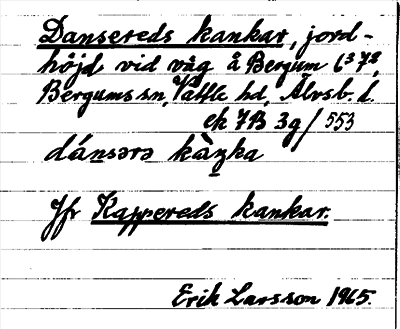 Dansereds kankar, jord-
höjd vid väg å Bergum 6³7²,
Bergums sn, Vättle hd, Älvsb. l.
ek 7B 3g/553
dánsərə kàŋka
Jfr Kappereds kankar.
Erik Larsson 1965.